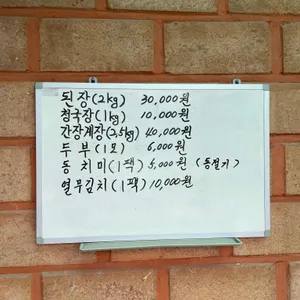 된장(2kg) 30,000원
청국장(1kg) 10,000원
간장게장(2,5kg) 40,000원
두부(1모) 6,000원
동치미(1팩) 5,000원 (동절기)
열무김치(1팩) 10,000원